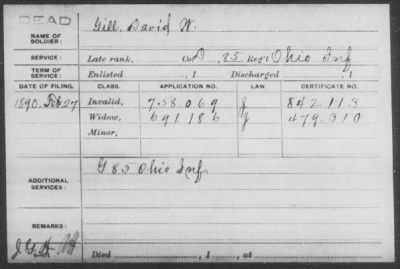 DEAD
NAME OF SOLDIER: Gill, David W.
SERVICE: Late rank, Co. D, 85 Reg't Ohio Inf
TERM OF SERVICE: Enlisted , 1 Discharged , 1
DATE OF FILING. CLASS. APPLICATION NO. LAW. CERTIFICATE NO.
1890, Feb 27 Invalid, 758.069 J 842.113
Widow, 691.186 J 479.310
Minor,
ADDITIONAL SERVICES: G 85 Ohio Inf
REMARKS:
Died , 1 , at